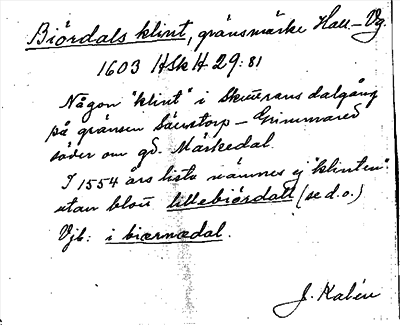 Biördals klint, gränsmärke Hall.–Vg.
1603 HSk H 29:81
Någon "klint" i Skuttrans dalgång
på gränsen Säustorp – Grimmared
söder om gd. Märkedal.
I 1554 års lista nämnes ej "klinten"
utan blott lillebiördall (se d.o.)
Vjb: i biærnædal.
J. Kalén